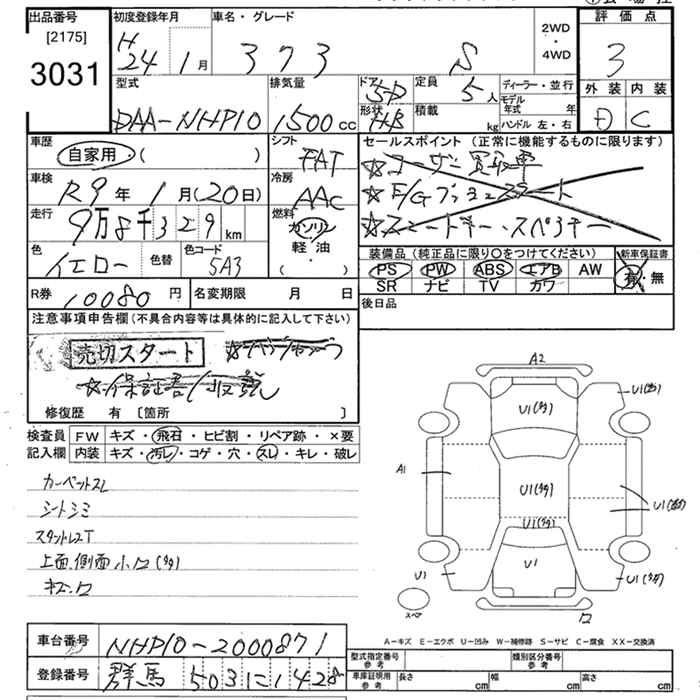 出品番号 初度登録年月 車名・グレード 評価点
[2175] 2WD・4WD
3031 H24 1月 373 S 3
型式 排気量 ドア 5D 定員 5人 ディーラー・並行 外装 内装
DAA-NHP10 1500cc 形状 H/B 積載 kg モデル年式 年 ハンドル 左・右 D C
車歴 シフト セールスポイント (正常に機能するものに限ります)
自家用・( ) FAT ☆ユーザー買取車
車検 R9年 1月(20日) 冷房 AAC ☆E/Gプッシュスタート
走行 9万8千329km 燃料 ガソリン・軽油・( ) ☆スマートキー・スペアキー
色 イエロー 色替 色コード 5A3 装備品 (純正品に限り○をつけてください) 新車保証書
PS PW ABS エアB AW 有・無
SR ナビ TV カワ
R券 10080円 名変期限 月 日 後日品
注意事項申告欄 (不具合内容等は具体的に記入して下さい)
売切スタート
修復歴 有 [箇所 ]
検査員 FW キズ・飛石・ヒビ割・リペア跡・×要
記入欄 内装 キズ・汚レ・コゲ・穴・スレ・キレ・破レ
カーペットスレ
シートシミ
上面、側面 小 (多)
A2
U1(多)
U1(多)
A1
U1(多)
U1(多)
U1(多)
U1
U1
U1(多)
スペア
車台番号 NHP10-2000871
A-キズ E-エクボ U-凹み W-補修跡 S-サビ C-腐食 XX-交換済
型式指定番号 参考 類別区分番号 参考
登録番号 群馬 503 に 1428
車庫証明用 参考 長さ cm 幅 cm 高さ cm